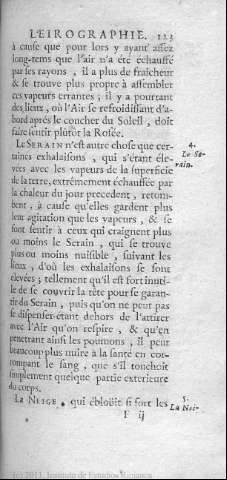 L'EIROGRAPHIE. 123
à cause que pour lors y ayant assez
long-tems que l'air n'a été échauffé
par ses rayons, il a plus de fraicheur
& se trouve plus propre à assembler
ces vapeurs errantes ; il y a pourtant
des lieux, où l'Air se refroidissant d'a-
bord aprés le coucher du Soleil, doit
faire sentir plûtôt la Rosée.
Le SERAIN n'est autre chose que cer-
taines exhalaisons, qui s'étant éle-
vées avec les vapeurs de la superficie
de la terre, extrémement échauffée par
la chaleur du jour precedent, retom-
bent, à cause qu'elles gardent plus
leur agitation que les vapeurs, & se
font sentir à ceux qui craignent plus
ou moins le Serain, qui se trouve
plus ou moins nuisible, suivant les
lieux, d'où les exhalaisons se sont
élevées ; tellement qu'il est fort inuti-
le de se couvrir la tête pour se garan-
tir du Serain, puis qu'on ne peut pas
se dispenser étant dehors de l'attirer
avec l'Air qu'on respire, & qu'en
penetrant ainsi les poumons, il peut
beaucoup plus nuire à la santé en cor-
rompant le sang, que s'il touchoit
simplement quelque partie exterieure
du corps.
La NEIGE, qui éblouit si fort les
F ij
4.
Le Se-
rain.
5.
La Nei-
(c) 2011. Instituto de Estudios Riojanos